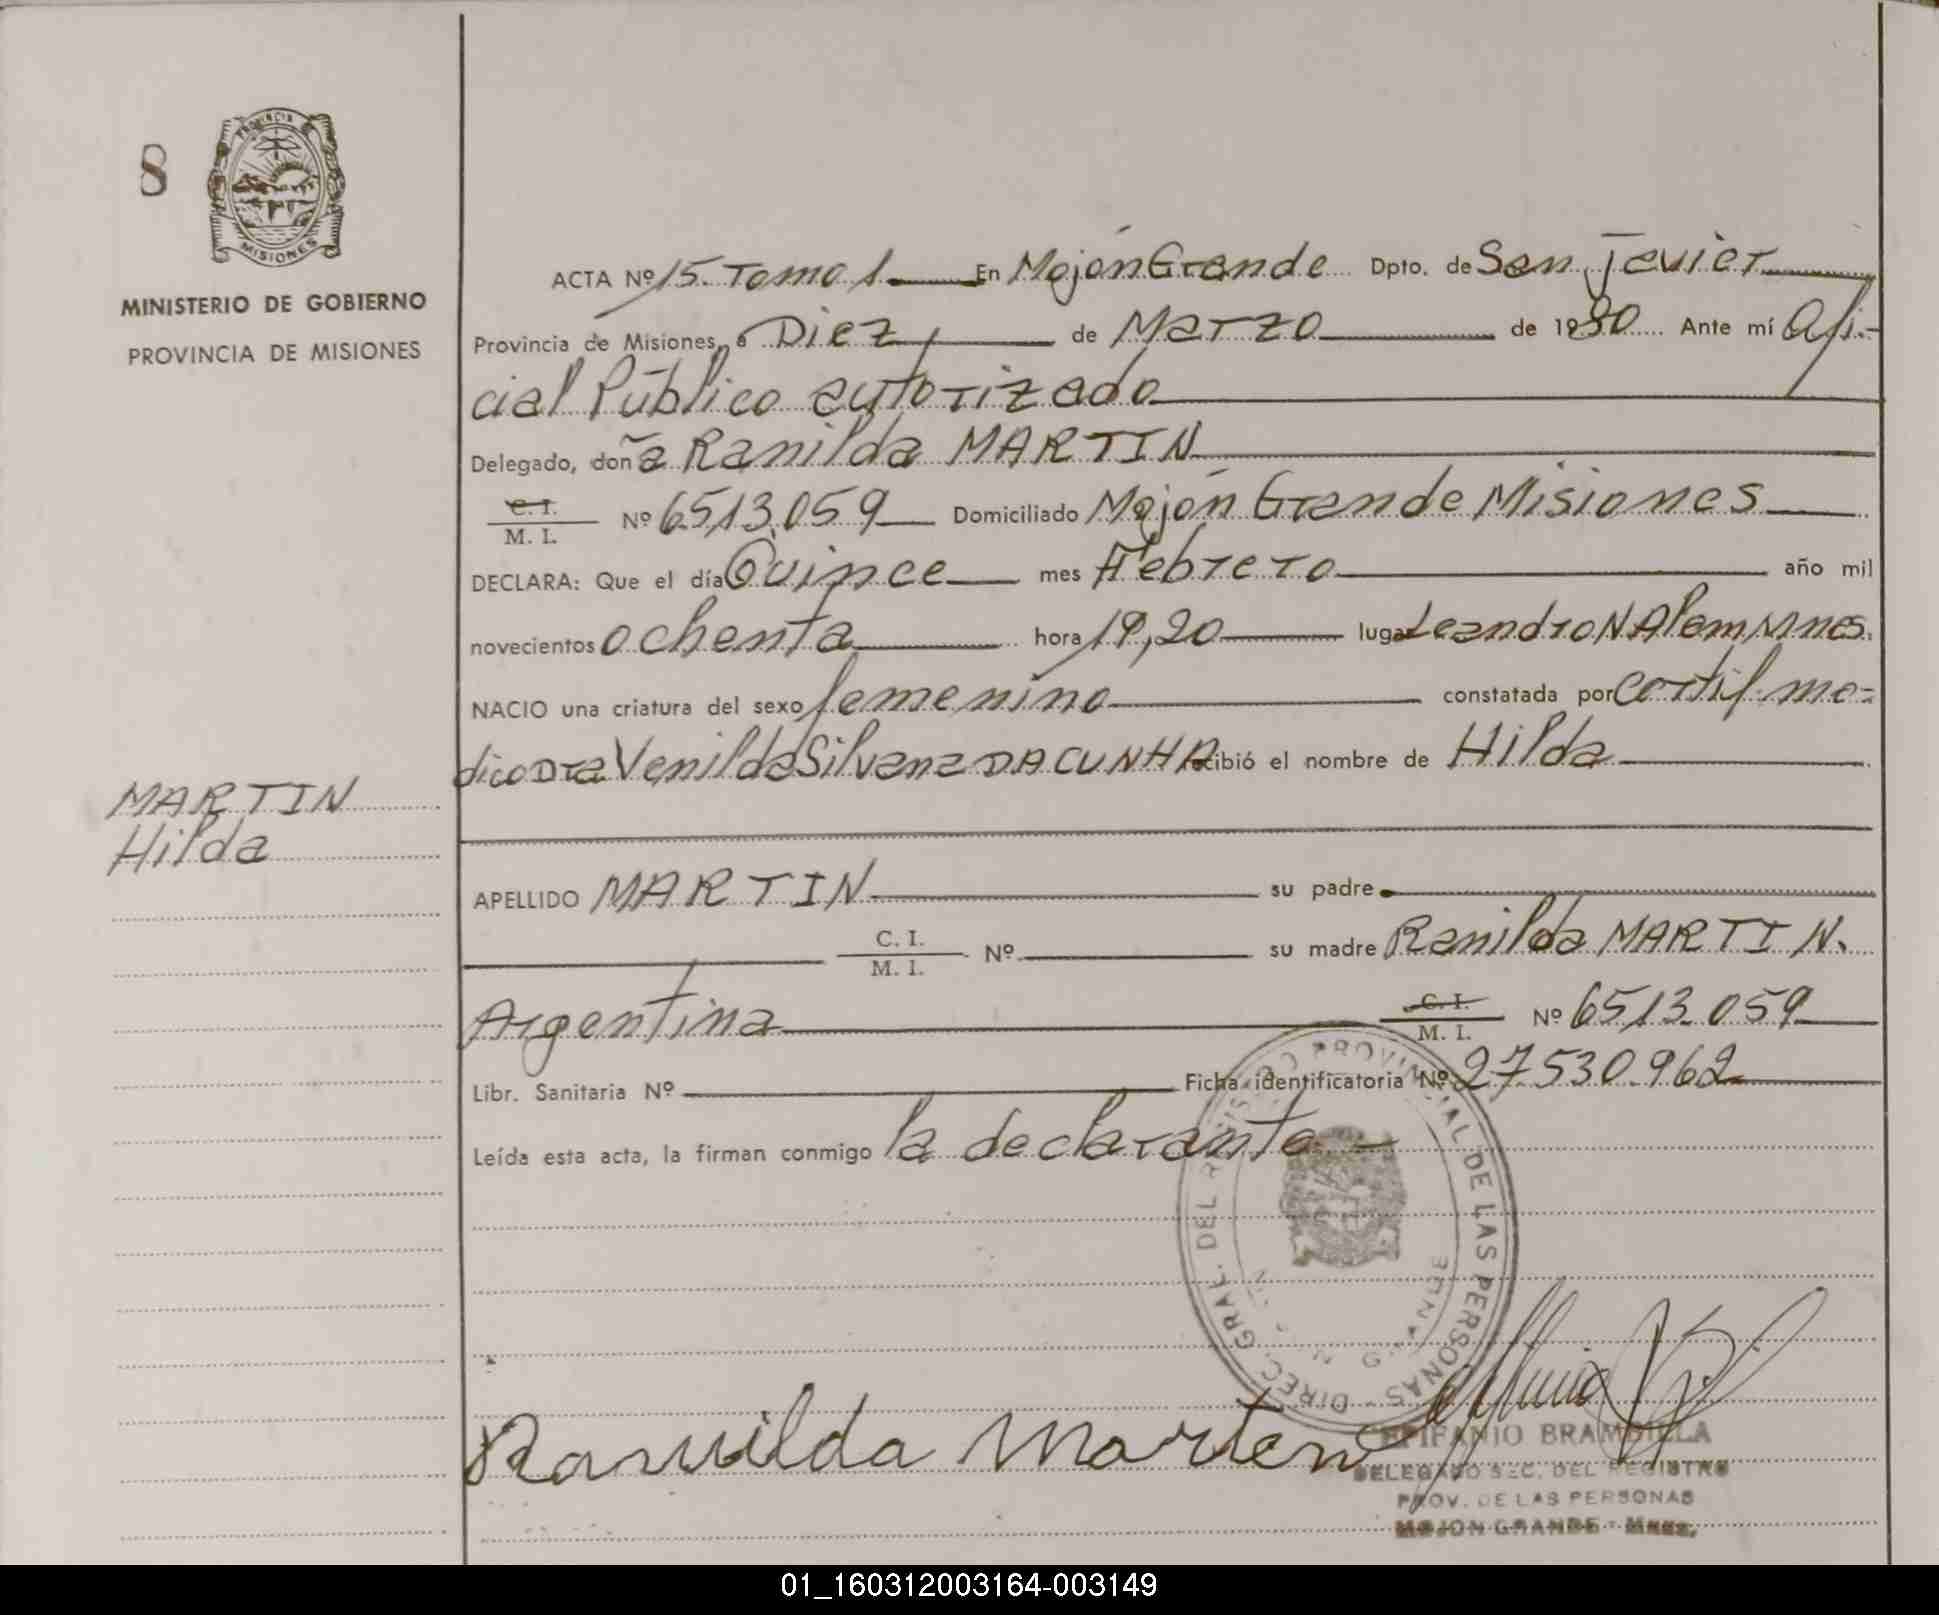 8
PROVINCIA DE
MISIONES
MINISTERIO DE GOBIERNO
PROVINCIA DE MISIONES
MARTIN
Hilda
ACTA Nº 15. Tomo 1 En Mojón Grande Dpto. de San Javier
Provincia de Misiones, a Diez de Marzo de 1980 Ante mí Ofi-
cial Público autorizado
Delegado, doña Ranilda MARTIN
C. I.
M. I. Nº 6513.059 Domiciliado Mojón Grande Misiones
DECLARA: Que el día Quince mes Febrero año mil
novecientos ochenta hora 19,20 lugar Leandro N Alem Mnes.
NACIO una criatura del sexo femenino constatada por Certif. me-
dico Dra Venilda Silvana DA CUNHA recibió el nombre de Hilda
APELLIDO MARTIN su padre
C. I.
M. I. Nº su madre Ranilda MARTIN.
Argentina C. I.
M. I. Nº 6513.059
Libr. Sanitaria Nº Ficha identificatoria Nº 27.530.962
Leída esta acta, la firman conmigo la declarante.-
DIREC. GRAL. DEL REGISTRO PROVINCIAL DE LAS PERSONAS
Ranuilda Marten
EPIFANIO BRAMBILLA
DELEGADO SEC. DEL REGISTRO
PROV. DE LAS PERSONAS
MOJON GRANDE - Mnes.
01_160312003164-003149